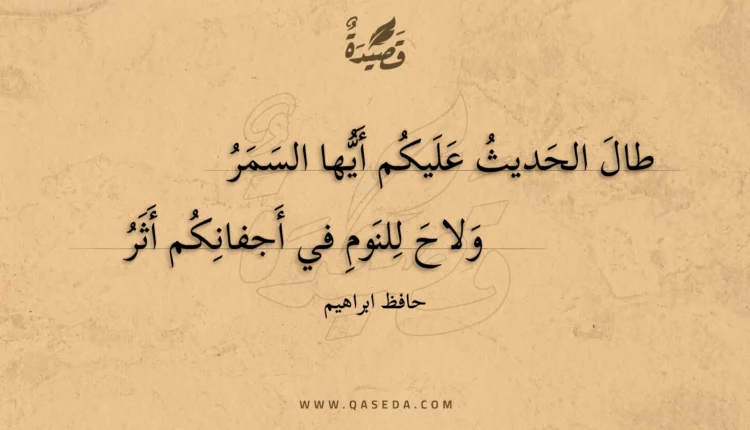 قَصِيْدَةٌ
طالَ الحَديثُ عَلَيكُم أَيُّها السَمَرُ
وَلاحَ لِلنَومِ في أَجفانِكُم أَثَرُ
حافظ ابراهيم
WWW.QASEDA.COM